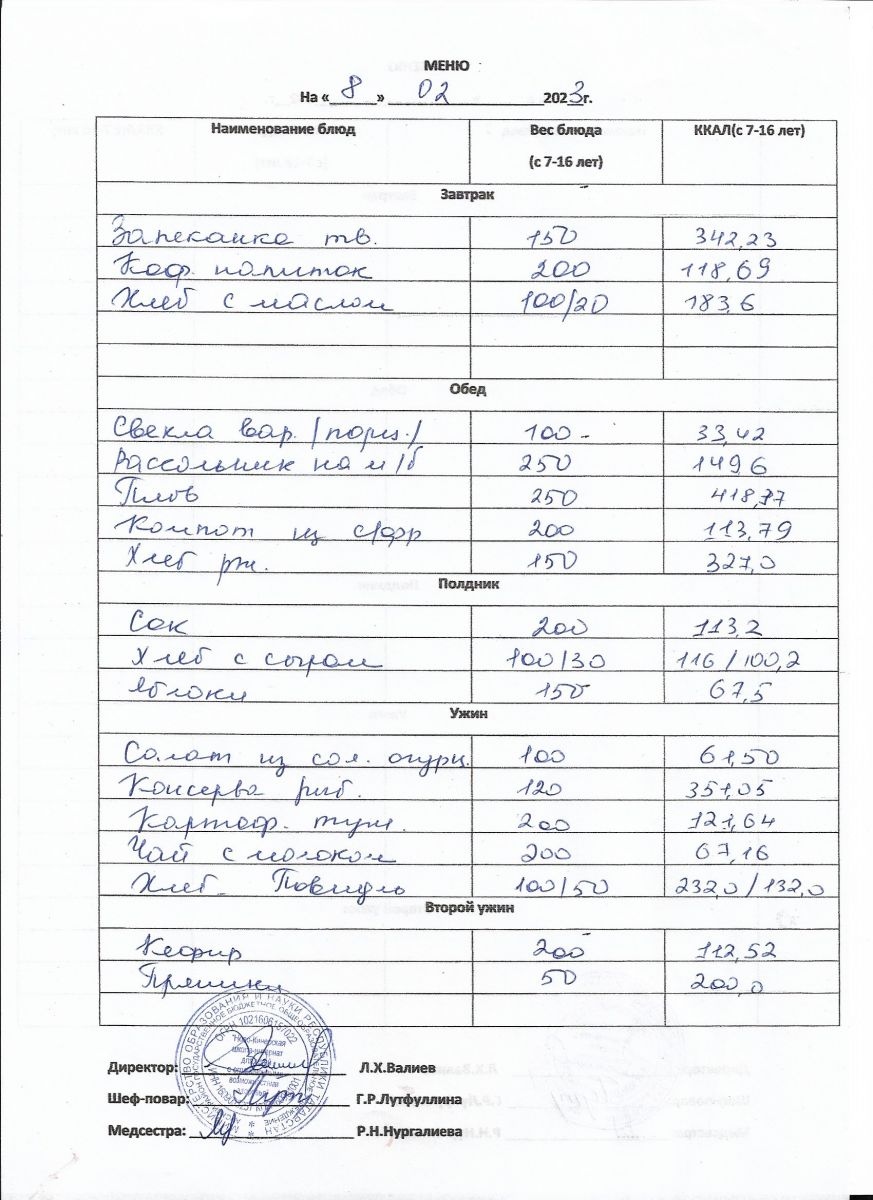 МЕНЮ
На « 8 » 02 2023г.
Наименование блюд Вес блюда (с 7-16 лет) ККАЛ(с 7-16 лет)
Завтрак
Запеканка тв. 150 342,23
Коф. напиток 200 118,69
Хлеб с маслом 100/20 183,6
Обед
Свекла вар. /порц./ 100 33,42
Рассольник на м/б 250 149,6
Плов 250 418,77
Компот из с/фр 200 113,79
Хлеб рж. 150 327,0
Полдник
Сок 200 113,2
Хлеб с сыром 100/30 116/100,2
Яблоки 150 67,5
Ужин
Салат из сол. огурц. 100 61,50
Консерва рыб. 120 351,05
Картоф. туш. 200 121,64
Чай с молоком 200 67,16
Хлеб Повидло 100/50 232,0/132,0
Второй ужин
Кефир 200 112,52
Пряники 50 200,0
Директор: Л.Х.Валиев
Шеф-повар: Г.Р.Лутфуллина
Медсестра: Р.Н.Нургалиева
ОГРН 1021606157022
"Ново-Кинерская
школа-интернат
возможностями